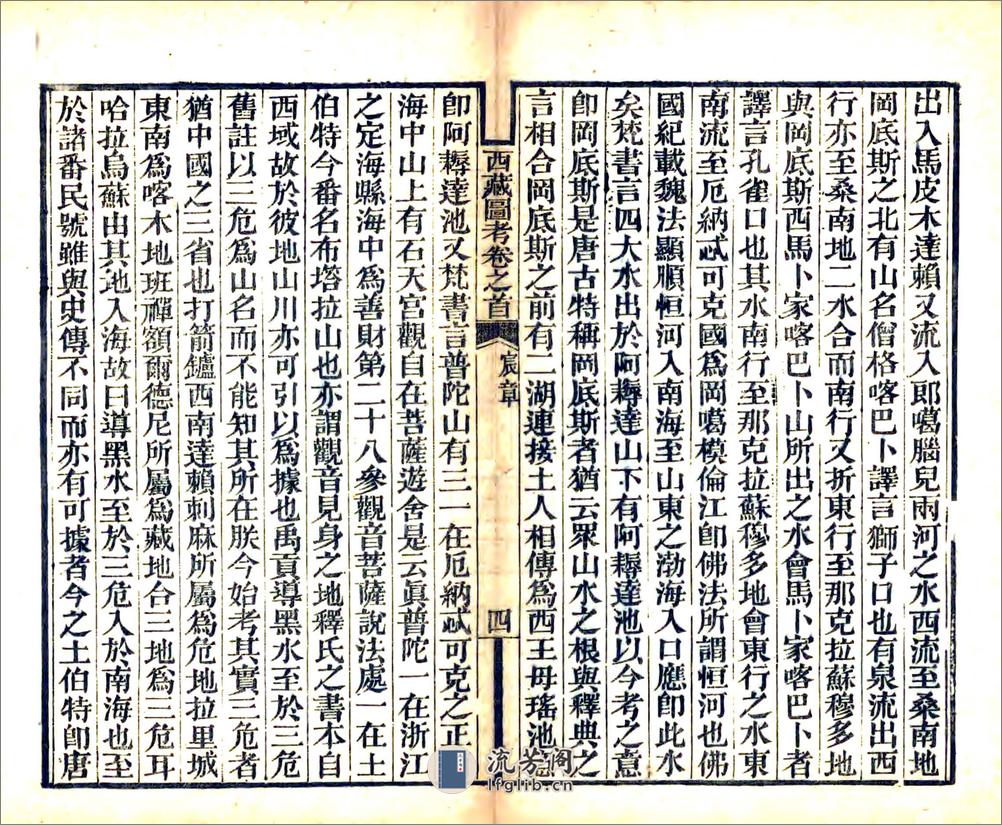 出入馬皮木達賴又流入郎噶腦兒兩河之水西流至桑南地
岡底斯之北有山名僧格喀巴卜譯言獅子口也有泉流出西
行亦至桑南地二水合而南行又折東行至那克拉蘇穆多地
與岡底斯西馬卜家喀巴卜山所出之水會馬卜家喀巴卜者
譯言孔雀口也其水南行至那克拉蘇穆多地會東行之水東
南流至厄納忒可克國為岡噶模倫江卽佛法所謂恒河也佛
國紀載魏法顯順恒河入南海至山東之渤海入口應卽此水
矣梵書言四大水出於阿耨達山下有阿耨達池以今考之意
卽岡底斯是唐古特稱岡底斯者猶云眾山水之根與釋典之
言相合岡底斯之前有二湖連接土人相傳為西王母瑤池意
西藏圖考卷之首 宸章 四
卽阿耨達池又梵書言普陀山有三一在厄納忒可克之正
海中山上有石天宮觀自在菩薩遊舍是云眞普陀一在浙江
之定海縣海中為善財第二十八參觀音菩薩說法處一在土
伯特今番名布塔拉山也亦謂觀音見身之地釋氏之書本自
西域故於彼地山川亦可引以為據也禹貢導黑水至於三危
舊註以三危為山名而不能知其所在朕今始考其實三危者
猶中國之三省也打箭鑪西南達賴剌麻所屬為危地拉里城
東南為喀木地班禪額爾德尼所屬為藏地合三地為三危耳
哈拉烏蘇由其地入海故曰導黑水至於三危入於南海也至
於諸番民號雖與史傳不同而亦有可據者今之土伯特卽唐
流芳阁
lfglib.cn